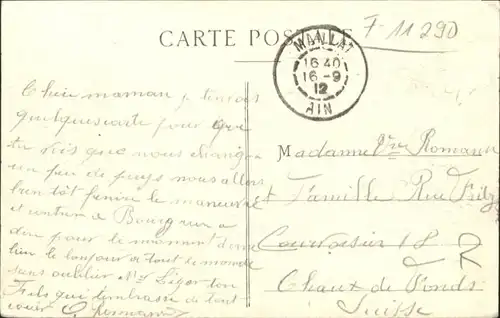 CARTE POSTALE
F 11290
MAILLAT
16 40
16 -9
12
AIN
Chère maman je t'envois
quelques carte pour que
tu vois que nous changions
un peu de pays nous allons
bientôt finire le maneuvre
et
Bourg rien a
dire pour le moment donne
bien le bonjour a tout le monde
sans oublier Mr
ton
Fils qui t'embrasse de tout
coeur
Romann
Madame Vve Romann
et Famille Rue Fritz
Courvoisier 18
Chaux de Fonds
Suisse